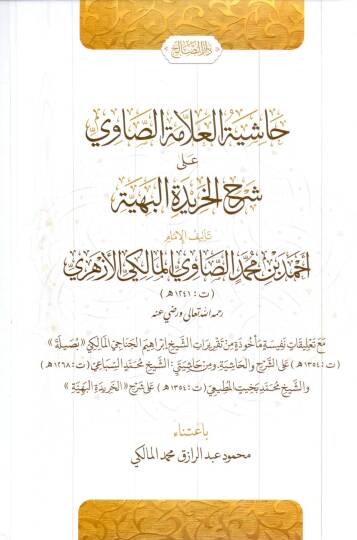 دار الصالح
حاشية العلامة الصاوي
على
شرح الخريدة البهية
تأليف الإمام
أحمد بن محمد الصاوي المالكي الأزهري
(ت: ١٢٤١ هـ)
رحمه الله تعالى ورضي عنه
مع تعليقات نفيسة مأخوذة من تقريرات الشيخ إبراهيم الجناجي المالكي «بصيلة»
(ت: ١٣٥٤ هـ) على الشرح والحاشية، ومن حاشيتي: الشيخ محمد السباعي (ت: ١٢٦٨ هـ)
والشيخ محمد بخيت المطيعي (ت: ١٣٥٤ هـ) على شرح «الخريدة البهية»
باعتناء
محمود عبد الرازق محمد المالكي